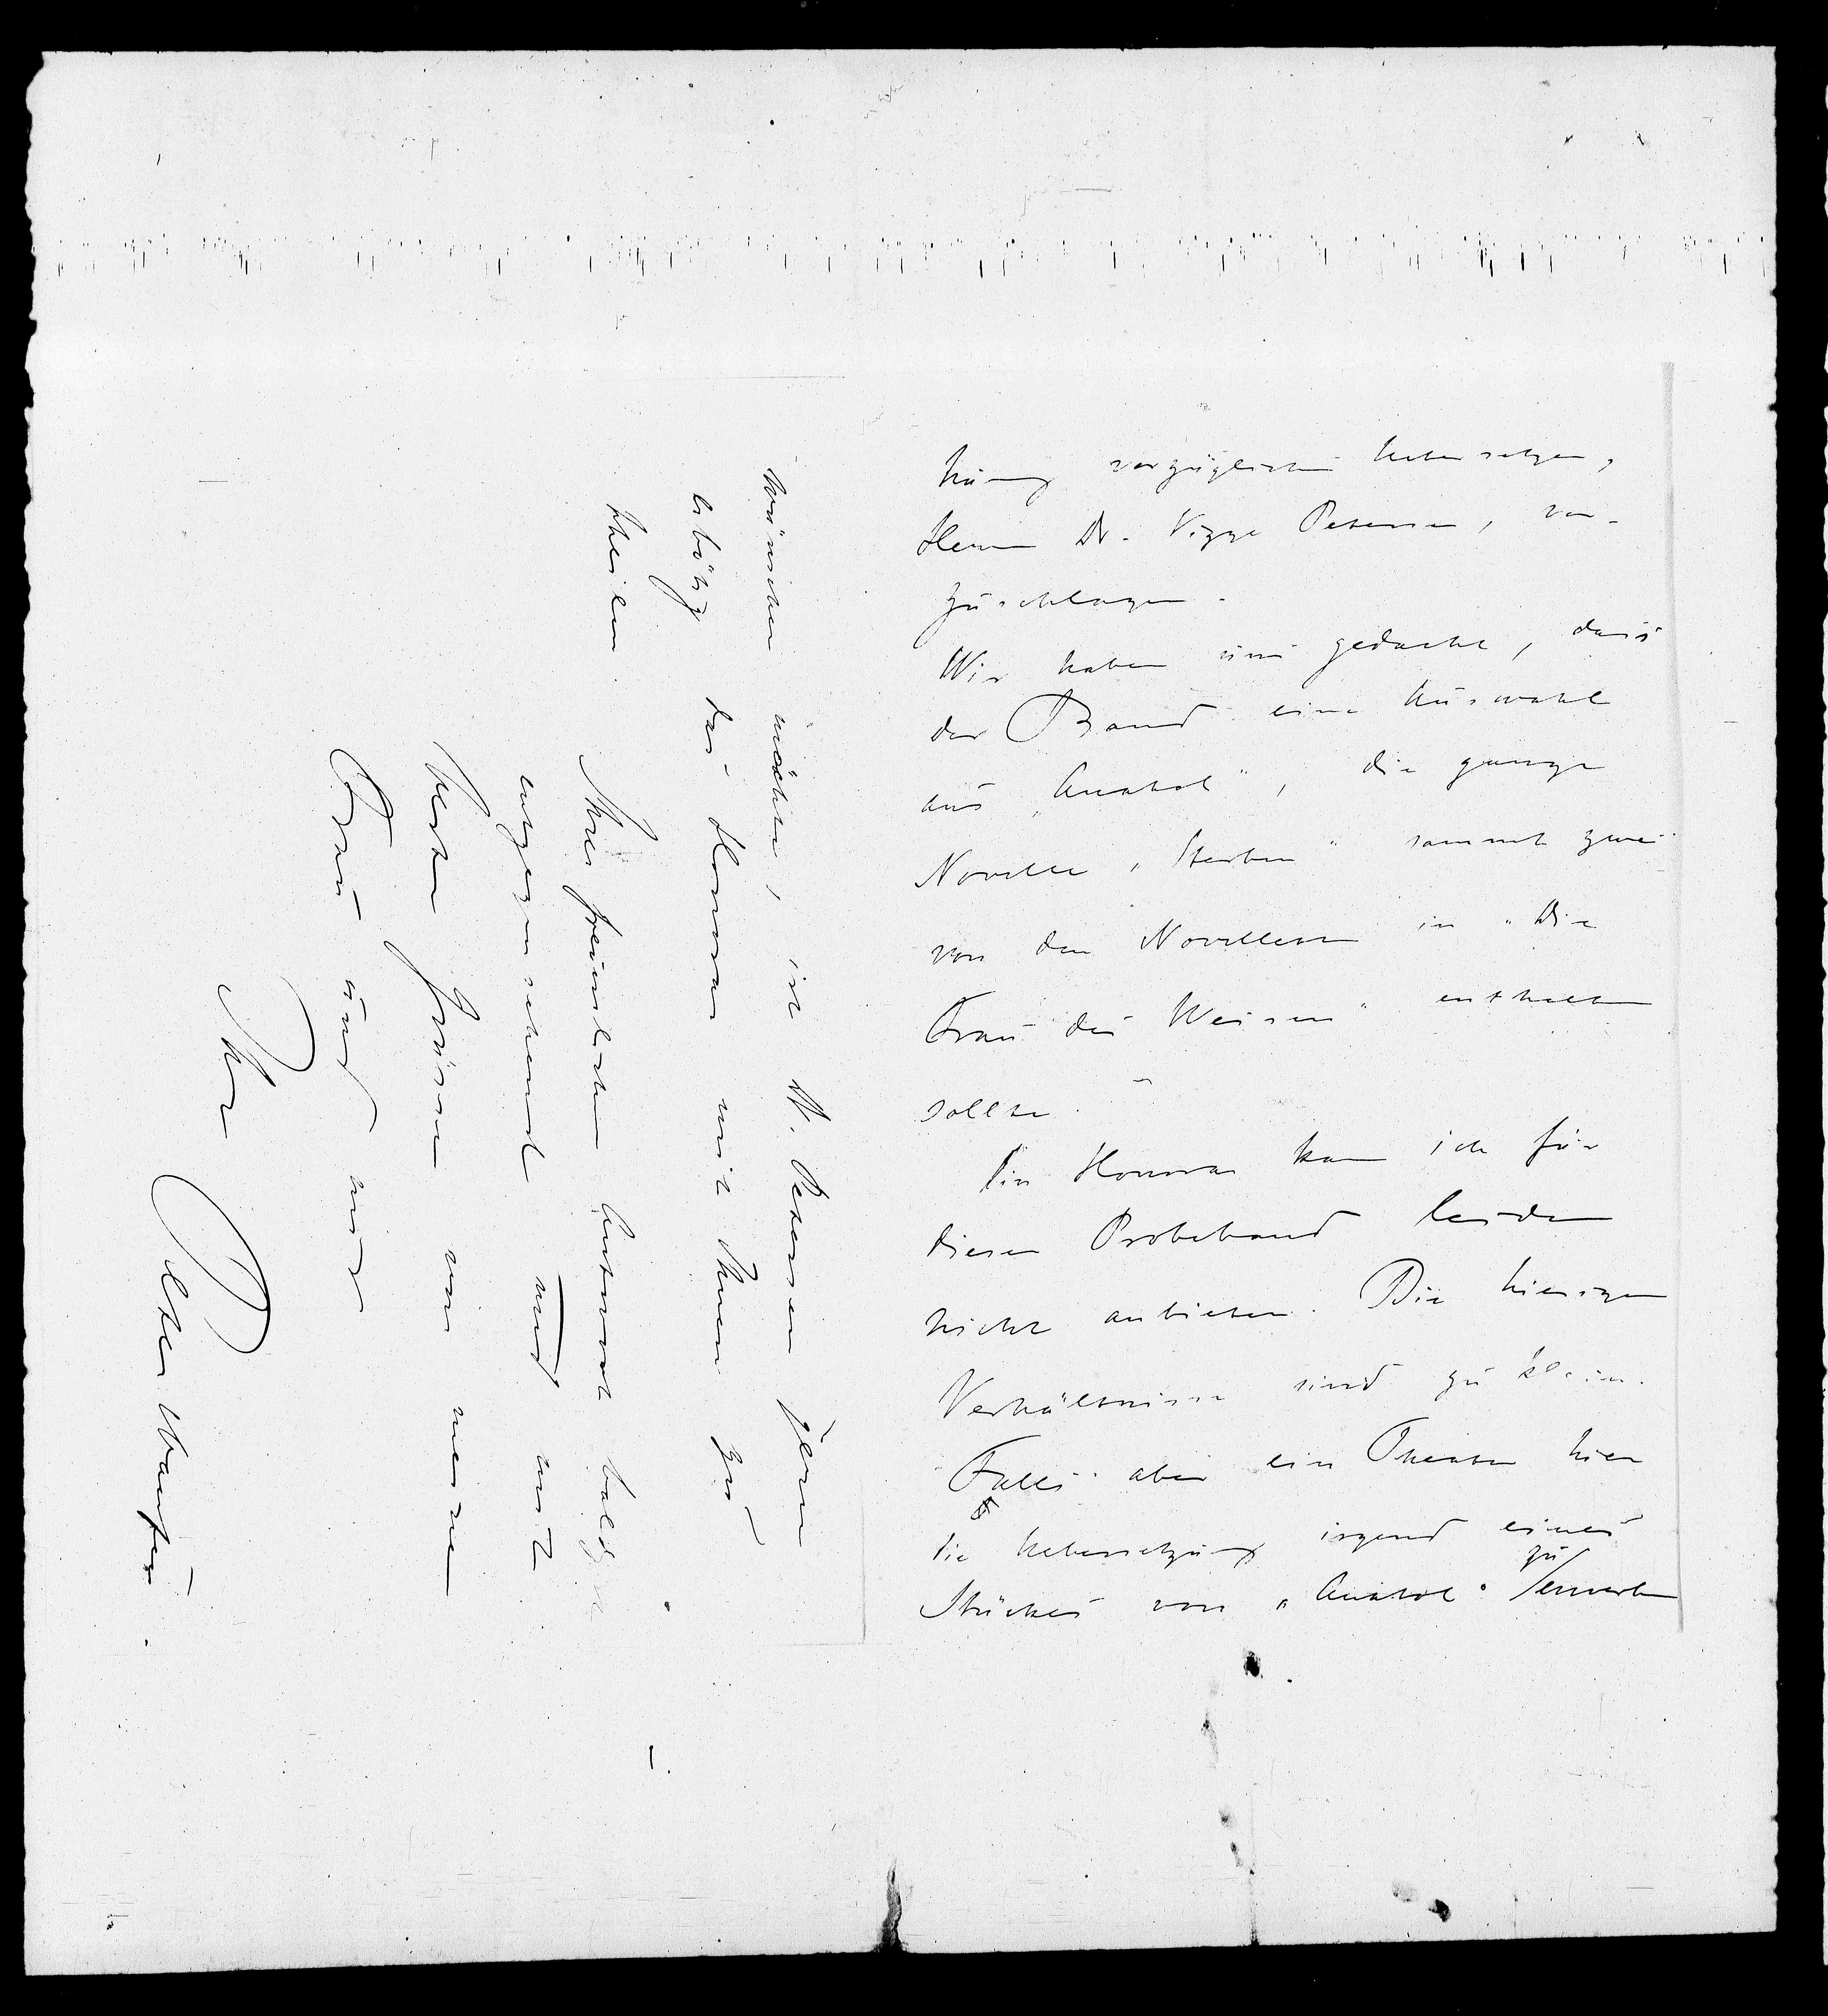 hung vorzüglichen Uebersetzer,
Herrn Dr. Vigge Petersen, vor-
zuschlagen.
Wir haben uns gedacht, dass
der Band eine Auswahl
aus „Anatol", die ganze
Novelle „Sterben" sammt zwei
von den Novellen in „Die
Frau des Weisen" enthalten
sollte.
Ein Honorar kann ich für
diesen Probeband leider
nicht anbieten. Die hiesigen
Verhältnisse sind zu klein.
Falls aber ein Theater hier
die Uebersetzung irgend eines
Stückes von „Anatol" zu erwerben
wünschen möchte, ist Dr. Petersen gern
erbötig das Honorar mit Ihnen zu
theilen.
Ihrer freundlichen Antwort baldigst
entgegensehend und mit
besten Grüssen von meiner
Frau und mir
Ihr
Peter Nansen.